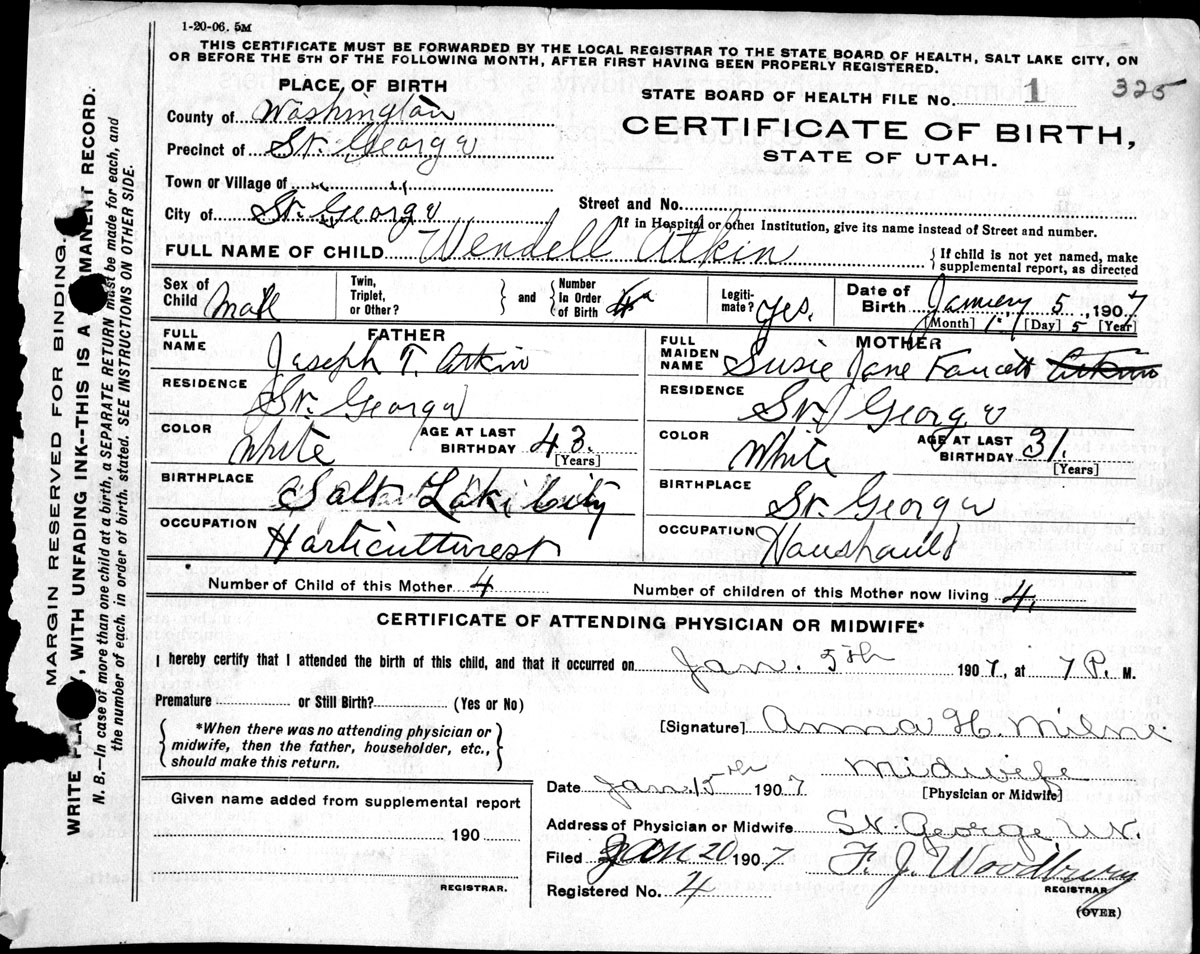 1-20-06. 5M
THIS CERTIFICATE MUST BE FORWARDED BY THE LOCAL REGISTRAR TO THE STATE BOARD OF HEALTH, SALT LAKE CITY, ON
OR BEFORE THE 5TH OF THE FOLLOWING MONTH, AFTER FIRST HAVING BEEN PROPERLY REGISTERED.
PLACE OF BIRTH
STATE BOARD OF HEALTH FILE No. 1 325
County of Washington
CERTIFICATE OF BIRTH,
STATE OF UTAH.
Precinct of St. George
Town or Village of " "
City of St. George
Street and No.
If in Hospital or other Institution, give its name instead of Street and number.
FULL NAME OF CHILD Wendell Atkin
{If child is not yet named, make
supplemental report, as directed
Sex of Child Male
Twin, Triplet, or Other? } and { Number In Order of Birth 4
Legitimate? Yes.
Date of Birth January 5, 1907
[Month] 1 [Day] 5 [Year]
FATHER
MOTHER
FULL NAME Joseph T. Atkin
FULL MAIDEN NAME Susie Jane Faucett Atkin
RESIDENCE St. George
RESIDENCE St. George
COLOR White AGE AT LAST BIRTHDAY 43. [Years]
COLOR White AGE AT LAST BIRTHDAY 31. [Years]
BIRTHPLACE Salt Lake City
BIRTHPLACE St. George
OCCUPATION Horticulturest
OCCUPATION Haushauld
Number of Child of this Mother 4 Number of children of this Mother now living 4.
CERTIFICATE OF ATTENDING PHYSICIAN OR MIDWIFE*
I hereby certify that I attended the birth of this child, and that it occurred on Jan. 5th 1907, at 7 P. M.
Premature or Still Birth? (Yes or No)
*When there was no attending physician or
midwife, then the father, householder, etc.,
should make this return.
[Signature] Anna H. Milne
Midwife
[Physician or Midwife]
Date Jan. 15th 1907
Given name added from supplemental report
190
REGISTRAR.
Address of Physician or Midwife St. George Ut.
Filed Jan 20 1907 F. J. Woodbury
REGISTRAR
Registered No. 4
(OVER)
MARGIN RESERVED FOR BINDING.
WRITE PLA , WITH UNFADING INK--THIS IS A MANENT RECORD.
N. B.—In case of more than one child at a birth, a SEPARATE RETURN must be made for each, and
the number of each, in order of birth, stated. SEE INSTRUCTIONS ON OTHER SIDE.